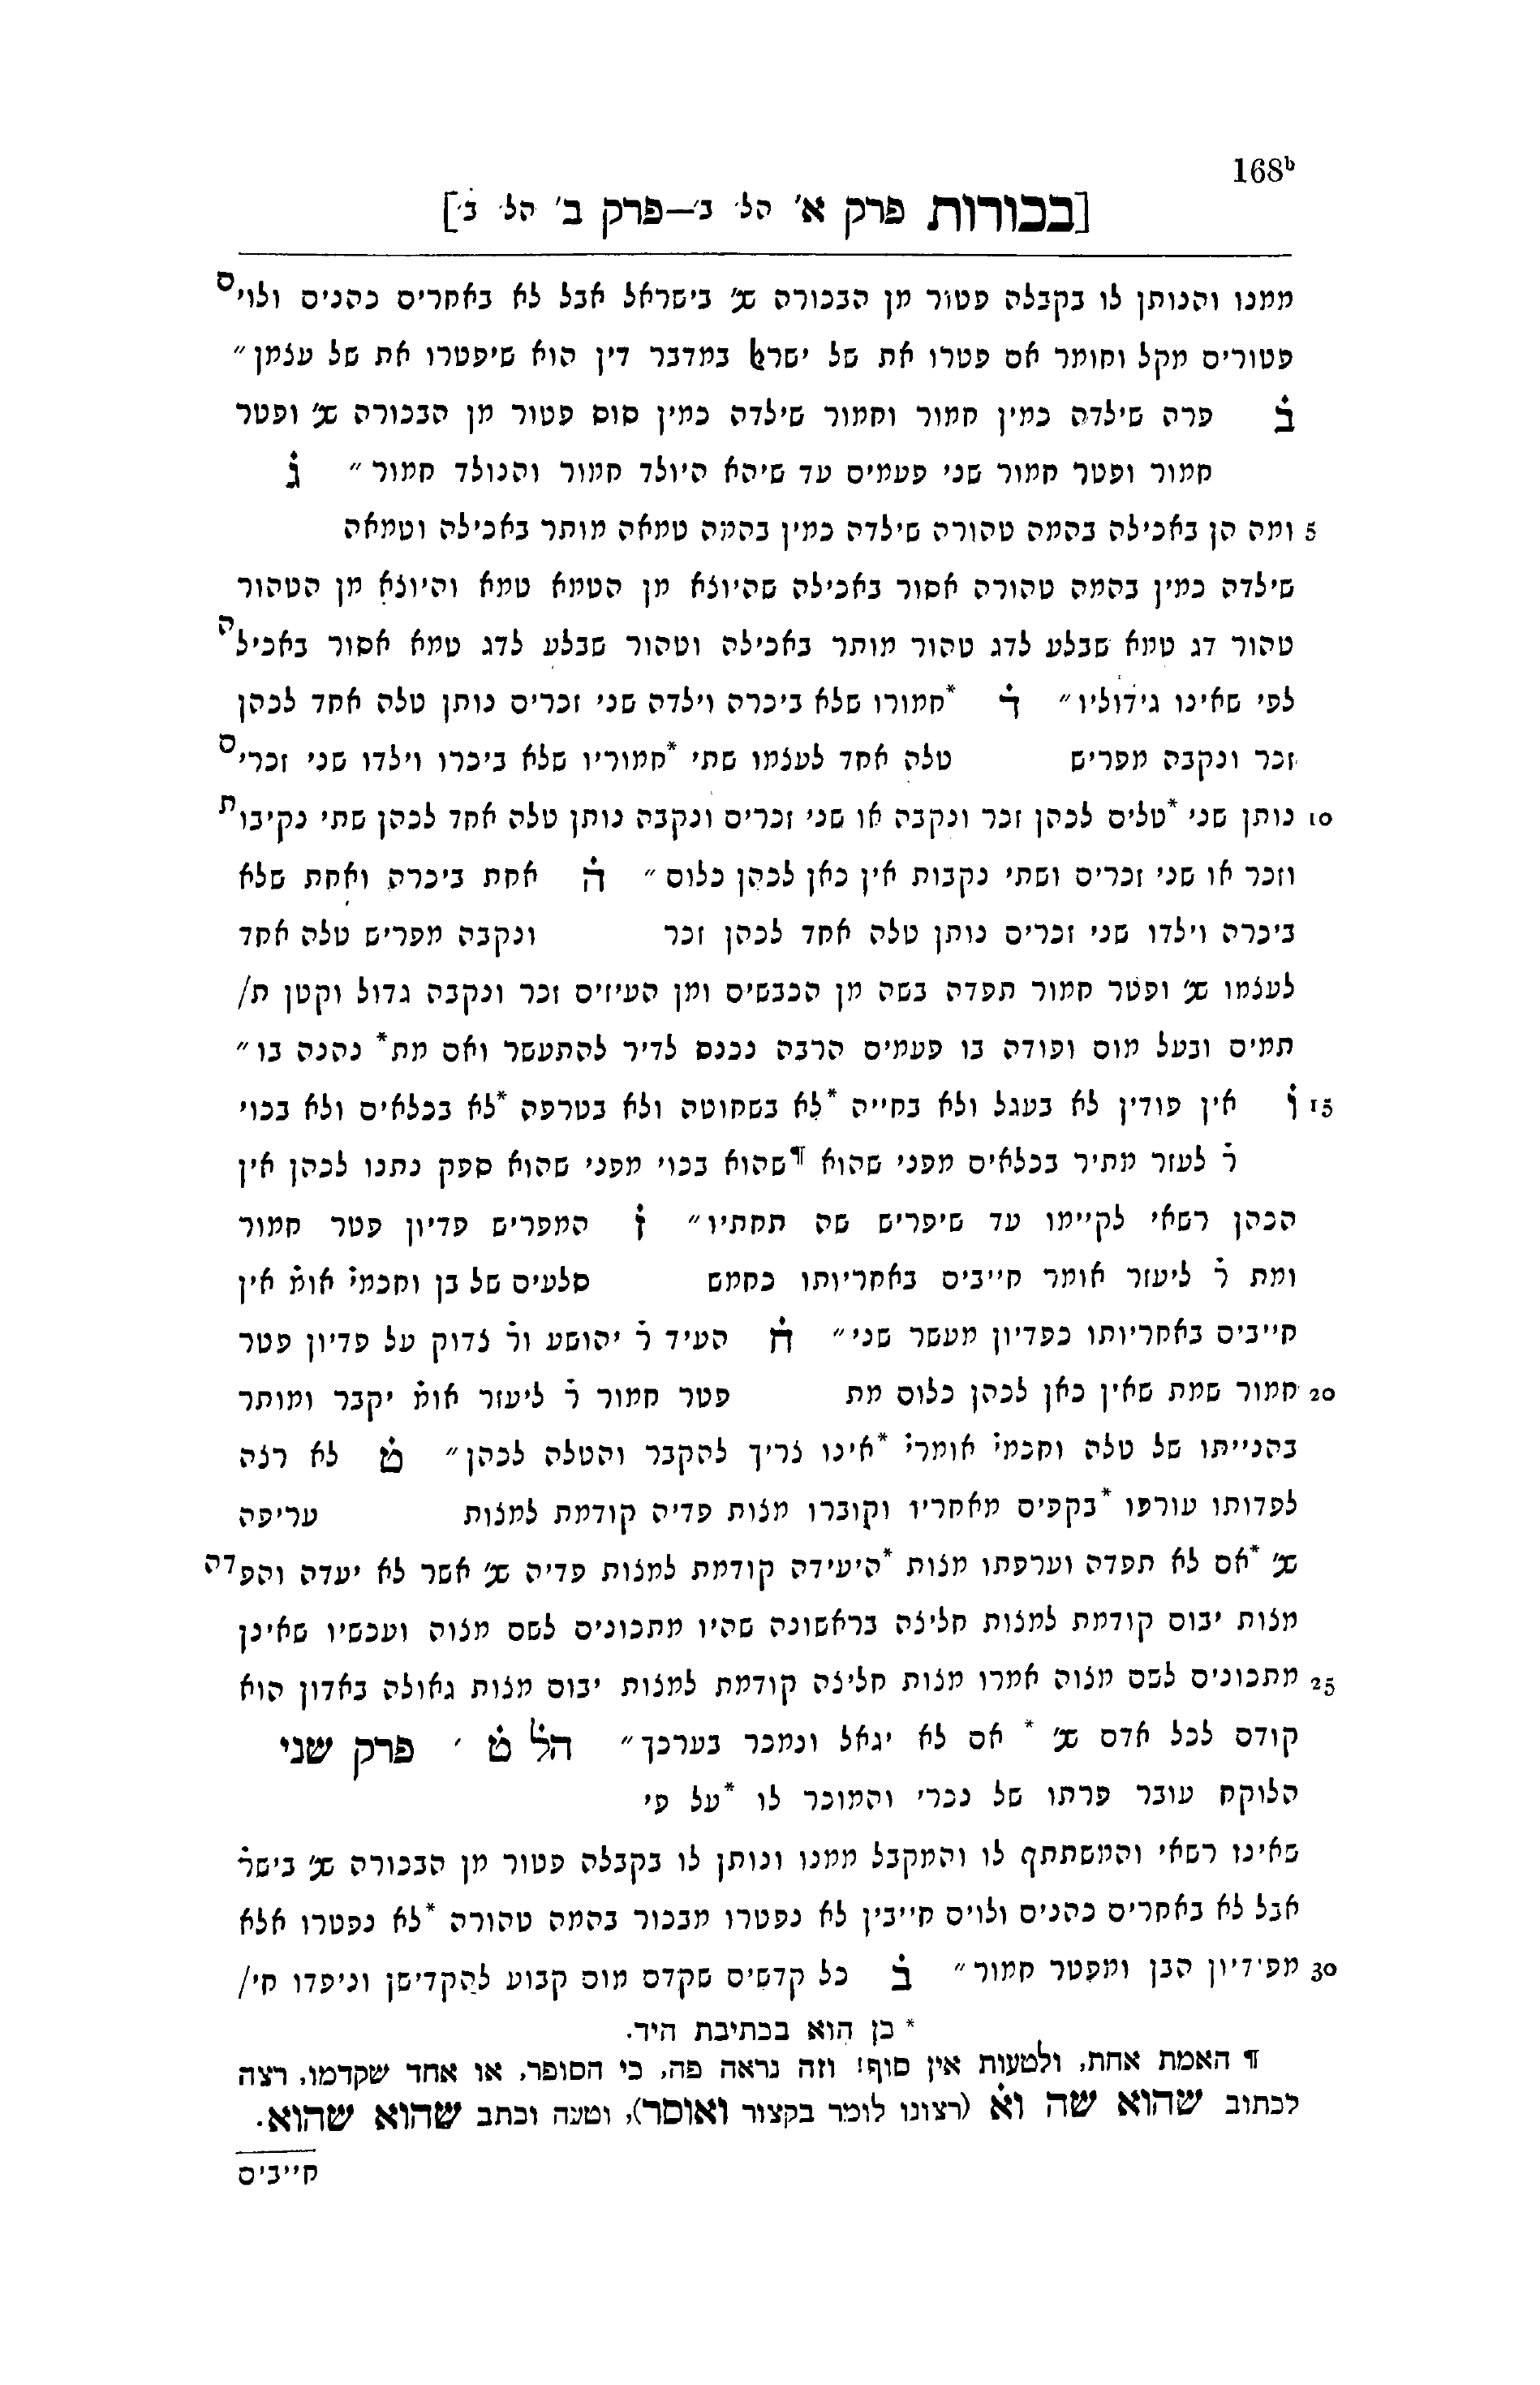 168ᵇ
[בכורות פרק א' הל' ב'—פרק ב' הל' ב']
ממנו והנותן לו בקבלה פטור מן הבכורה שנ' בישראל אבל לא באחרים כהנים ולוים
פטורים מקל וחומר אם פטרו את של ישראל במדבר דין הוא שיפטרו את של עצמן״
ב פרה שילדה כמין חמור וחמור שילדה כמין סוס פטור מן הבכורה שנ' ופטר
חמור ופטר חמור שני פעמים עד שיהא היולד חמור והנולד חמור״ ג
5 ומה הן באכילה בהמה טהורה שילדה כמין בהמה טמאה מותר באכילה וטמאה
שילדה כמין בהמה טהורה אסור באכילה שהיוצא מן הטמא טמא והיוצא מן הטהור
טהור דג טמא שבלע לדג טהור מותר באכילה וטהור שבלע לדג טמא אסור באכילה
לפי שאינו גידוליו״ ד *חמורו שלא ביכרה וילדה שני זכרים נותן טלה אחד לכהן
זכר ונקבה מפריש טלה אחד לעצמו שתי *חמוריו שלא ביכרו וילדו שני זכרים
10 נותן שני *טלים לכהן זכר ונקבה או שני זכרים ונקבה נותן טלה אחד לכהן שתי נקיבות
וזכר או שני זכרים ושתי נקבות אין כאן לכהן כלום״ ה אחת ביכרה ואחת שלא
ביכרה וילדו שני זכרים נותן טלה אחד לכהן זכר ונקבה מפריש טלה אחד
לעצמו שנ' ופטר חמור תפדה בשה מן הכבשים ומן העיזים זכר ונקבה גדול וקטן ת/
תמים ובעל מום ופודה בו פעמים הרבה נכנס לדיר להתעשר ואם מת* נהנה בו״
15 ו אין פודין לא בעגל ולא בחייה *לא בשחוטה ולא בטרפה *לא בכלאים ולא בכוי
ר̇ לעזר מתיר בכלאים מפני שהוא ¶שהוא בכוי מפני שהוא ספק נתנו לכהן אין
הכהן רשאי לקיימו עד שיפריש שה תחתיו״ ז המפריש פדיון פטר חמור
ומת ר̇ ליעזר אומר חייבים באחריותו כחמש סלעים של בן וחכמי̇ אומ̇ אין
חייבים באחריותו כפדיון מעשר שני״ ח העיד ר̇ יהושע ור̇ צדוק על פדיון פטר
20 חמור שמת שאין כאן לכהן כלום מת פטר חמור ר̇ ליעזר אומ̇ יקבר ומותר
בהנייתו של טלה וחכמי̇ אומרי̇ *אינו צריך להקבר והטלה לכהן״ ט לא רצה
לפדותו עורפו *בקפיס מאחריו וקוברו מצות פדיה קודמת למצות עריפה
שנ' *אם לא תפדה וערפתו מצות *היעידה קודמת למצות פדיה שנ' אשר לא יעדה והפדה
מצות יבום קודמת למצות חליצה בראשונה שהיו מתכונים לשם מצוה ועכשיו שאינן
25 מתכונים לשם מצוה אמרו מצות חליצה קודמת למצות יבום מצות גאולה באדון הוא
קודם לכל אדם שנ' * אם לא יגאל ונמכר בערכך״ הל ט ' פרק שני
הלוקח עובר פרתו של נכרי והמוכר לו *על פי
שאינו רשאי והמשתתף לו והמקבל ממנו ונותן לו בקבלה פטור מן הבכורה שנ' בישר̇
אבל לא באחרים כהנים ולוים חייבין לא נפטרו מבכור בהמה טהורה *לא נפטרו אלא
30 מפידיון הבן ומפטר חמור״ ב כל קדשים שקדם מום קבוע להקדישן וניפדו חי/
* כן הוא בכתיבת היד.
¶ האמת אחת, ולטעות אין סוף! וזה נראה פה, כי הסופר, או אחד שקדמו, רצה
לכתוב שהוא שה וא̇ (רצונו לומר בקצור ואוסר), וטעה וכתב שהוא שהוא.
חייבים